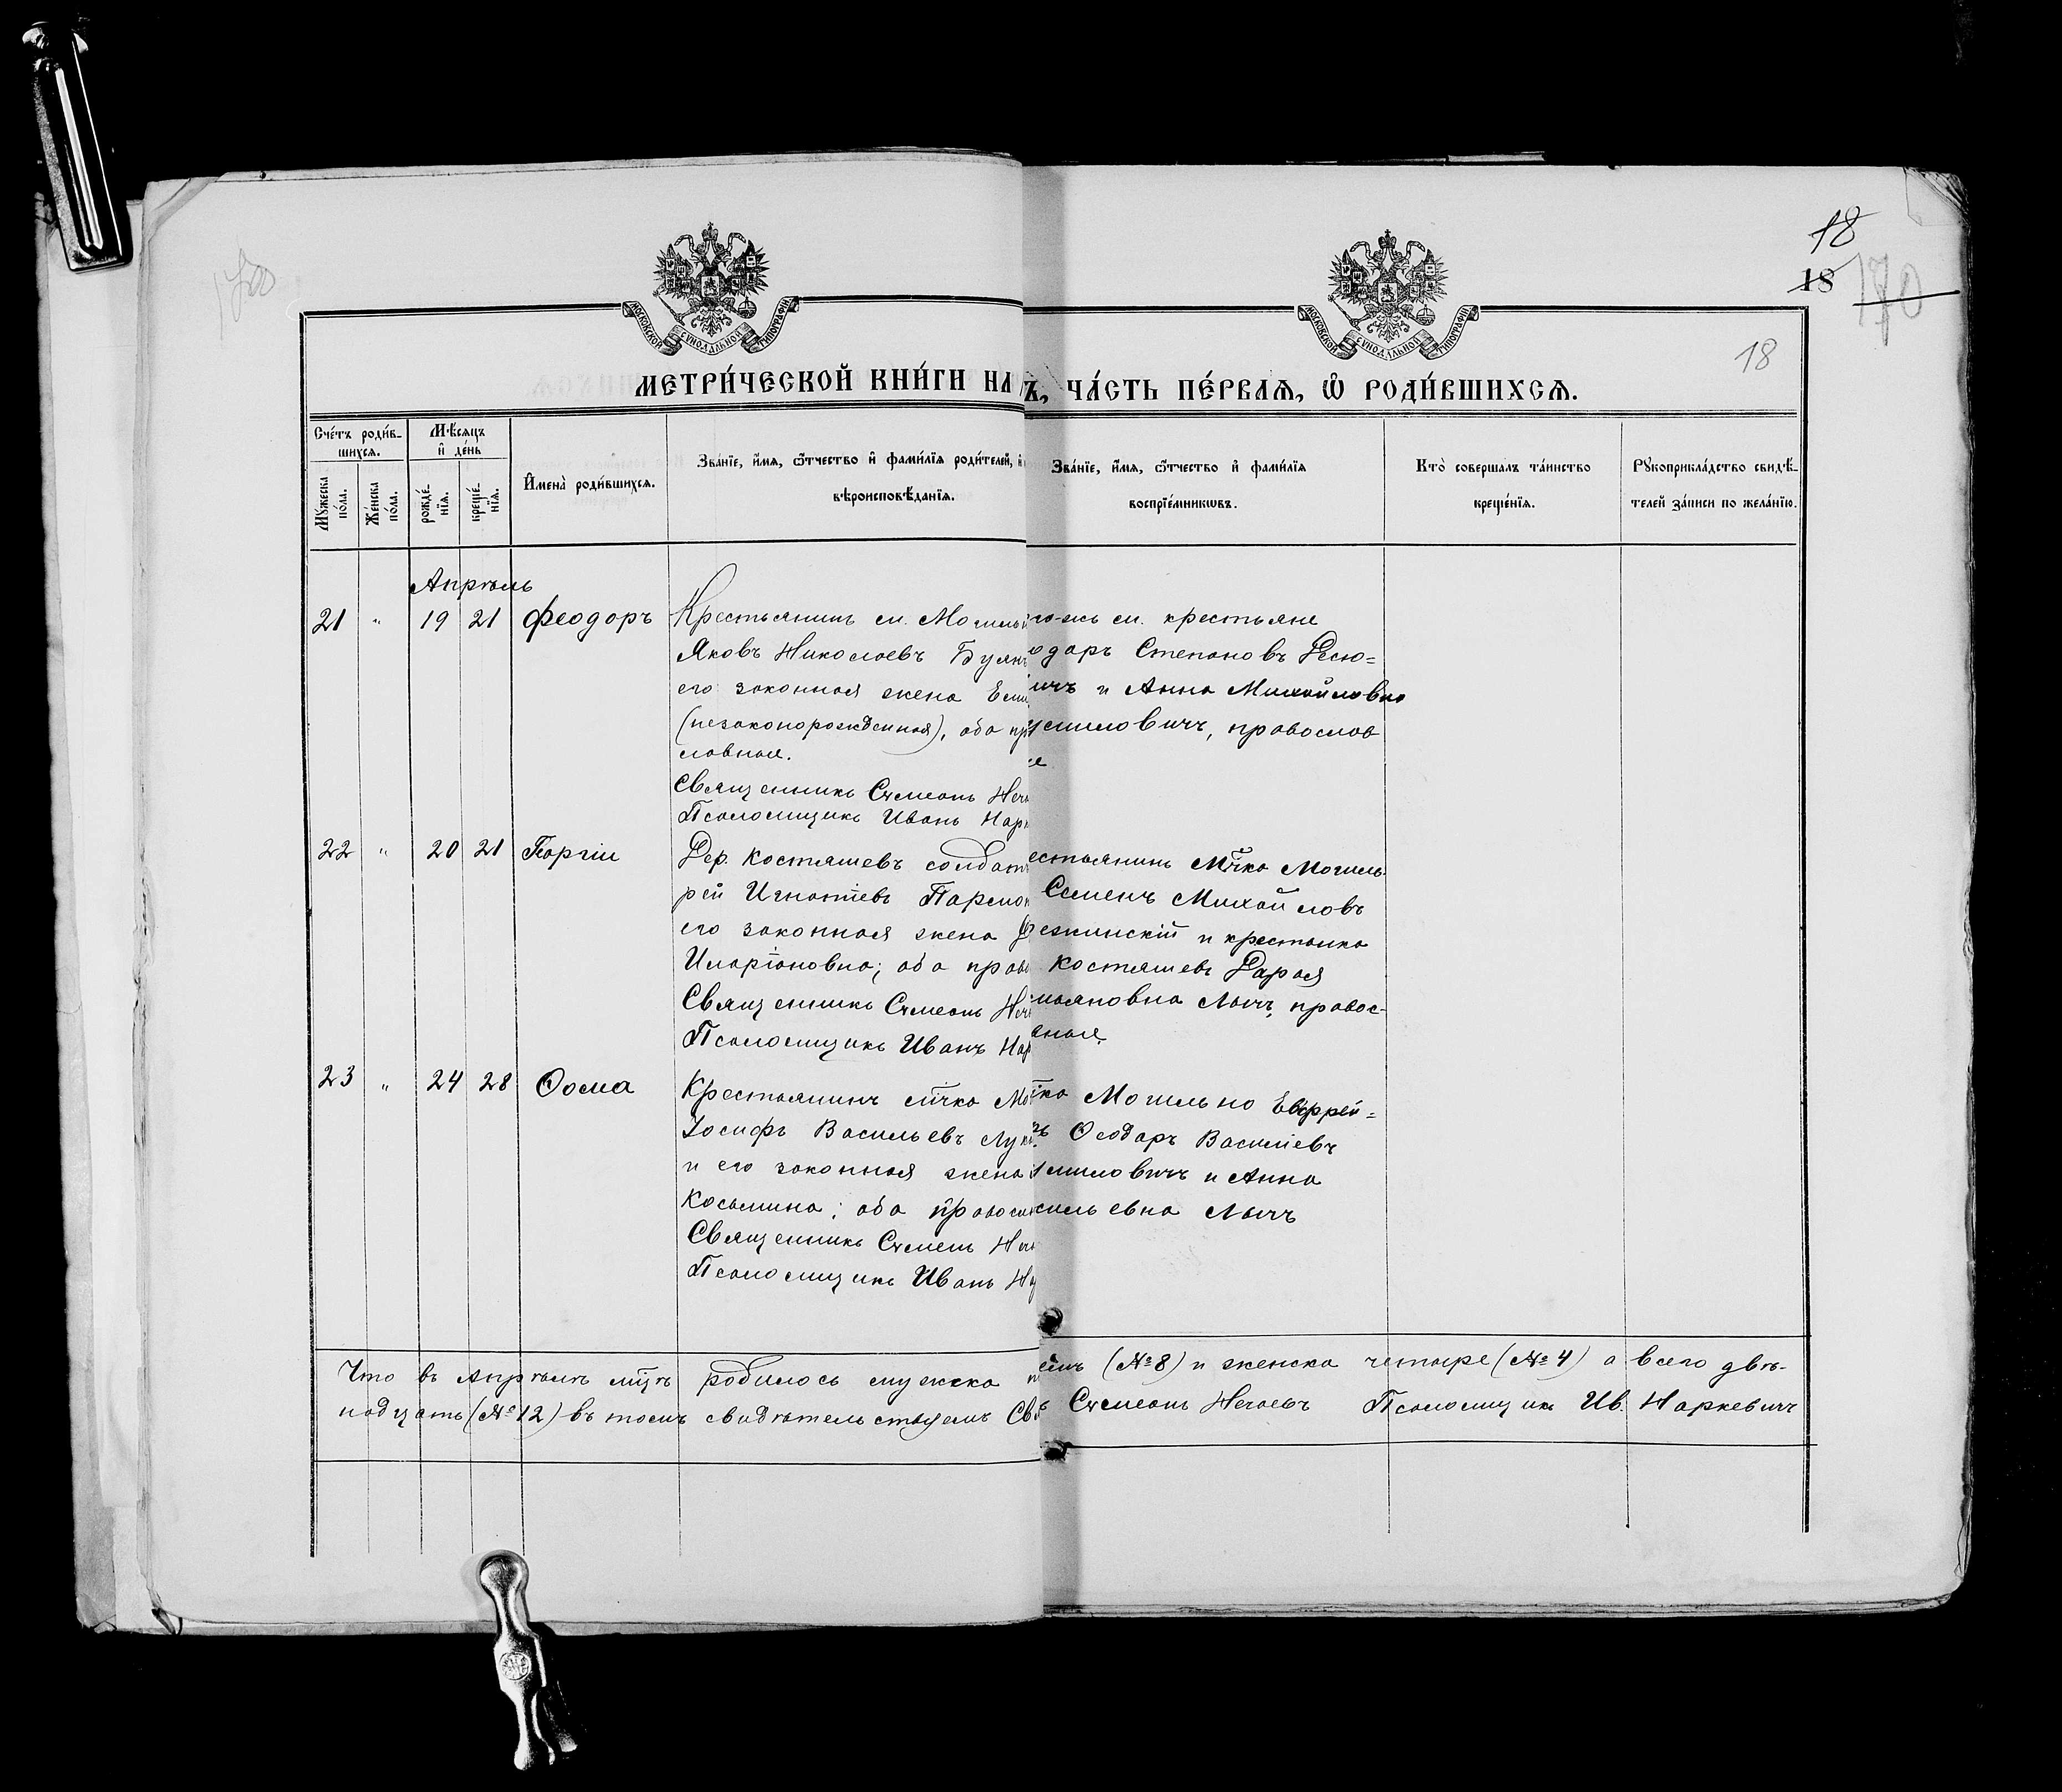 18
18 170
18
МОСКОВСКОЙ СѴНОДАЛЬНОЙ ТИПОГРАФІИ
МОСКОВСКОЙ СѴНОДАЛЬНОЙ ТИПОГРАФІИ
МЕТРИ́ЧЕСКОЙ КНИ́ГИ НА
Ъ, ЧА́СТЬ ПЕ́РВАѦ, Ѿ РОДИ́ВШИХСѦ.
Сче́тъ роди́в-
шихсѧ.
Мꙋжеска по́ла.
Же́нска по́ла.
Мѣ́сѧцъ
и҆ де́нь
рожде́-
нїѧ.
креще́-
нїѧ.
И҆мена̀ роди́вшихсѧ.
Зва́нїе, и҆́мѧ, ѻ҆́тчество и҆ фами́лїѧ роди́телей, и҆
вѣроисповѣ́данїѧ.
Зва́нїе, и҆́мѧ, ѻ҆́тчество и҆ фами́лїѧ
воспрїе́мникѡвъ.
Кто̀ соверша́лъ та́инство
креще́нїѧ.
Рꙋкоприкла́дство свидѣ́-
телей за́писи по жела́нїю.
Апрѣль
21 " 19 21 Феодоръ
Крестьянинъ м. Могильн
Яковъ Николаевъ Буян
его законная жена Ели
(незаконорожденная), оба пр
лавные.
Священникъ Сѵмеонъ Неч
Псаломщикъ Иванъ Нарк
го-жь м. крестьяне
одаръ Степановъ Десю=
ичъ и Анна Михайловна
смиловичъ, православ
е
22 " 20 21 Георгій
Дер. Костяшевъ солдат
рей Игнатіевъ Пармон
его законная жена
Иларіоновна; оба право
Священникъ Сѵмеонъ Неч
Псаломщикъ Иванъ Нар
естьянинъ м̃чка Могиль
Семенъ Михайловъ
ежинскій и крестьянка
Костяшевъ Дарья
мьяновна Лычъ, правос-
вная
23 " 24 28 Ѳома
Крестьянинъ м̃чка Мо
Іосифъ Васильевъ Лук
и его законная жена
Косьмина; оба правосл
Священникъ Сѵмеонъ Неч
Псаломщикъ Иванъ На
чка Могильно Евфрей=
ъ Ѳеодаръ Василіевъ
миловичъ и Анна
сильевна Лычъ
Что въ Апрѣлѣ мц̃ѣ родилось мужска
емъ (№ 8) и женска четыре (№ 4) а всего двѣ-
надцать (№ 12) въ томъ свидѣтельствуемъ Св
Сѵмеонъ Нечаевъ Псаломщикъ Ив. Наркевичъ